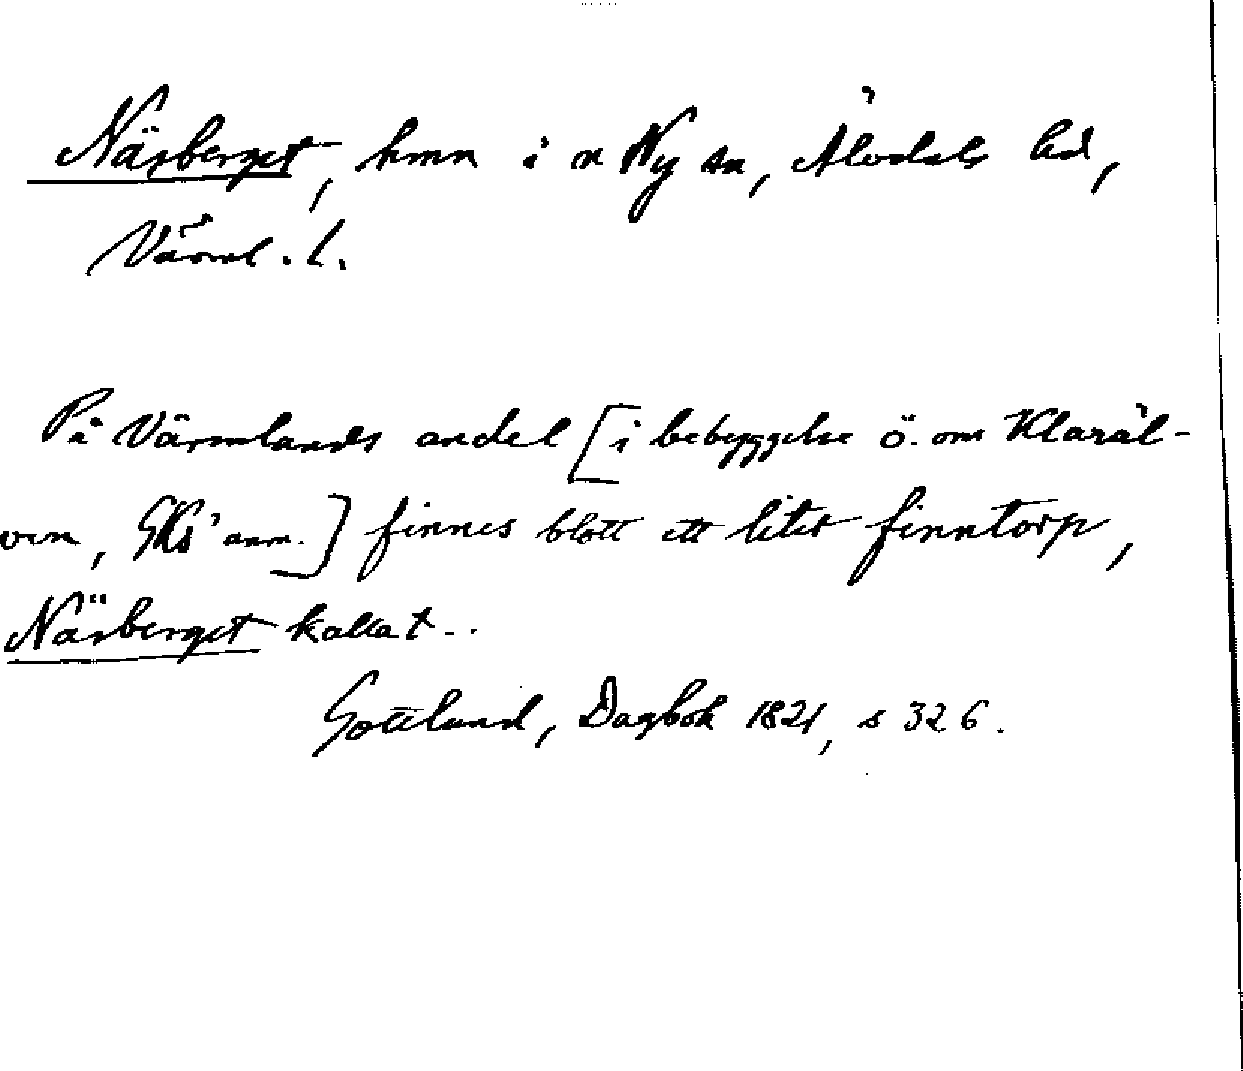 Näsberget, hmn i n Ny sn, Älvdals hd,
Värml. l.
På Värmlands andel [i bebyggelse ö. om Klaräl-
ven, SKs' anm.] finnes blott ett litet finntorp,
Näsberget kallat..
Gottlund, Dagbok 1821, s 326.